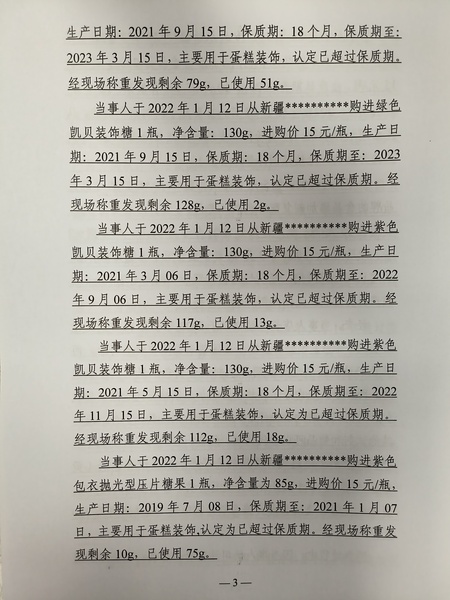 生产日期：2021 年 9 月 15 日，保质期：18 个月，保质期至：
2023 年 3 月 15 日，主要用于蛋糕装饰，认定已超过保质期。
经现场称重发现剩余 79g，已使用 51g。
当事人于 2022 年 1 月 12 日从新疆**********购进绿色
凯贝装饰糖 1 瓶，净含量：130g，进购价 15 元/瓶，生产日
期：2021 年 9 月 15 日，保质期：18 个月，保质期至：2023
年 3 月 15 日，主要用于蛋糕装饰，认定已超过保质期。经
现场称重发现剩余 128g，已使用 2g。
当事人于 2022 年 1 月 12 日从新疆**********购进紫色
凯贝装饰糖 1 瓶，净含量：130g，进购价 15 元/瓶，生产日
期：2021 年 3 月 06 日，保质期：18 个月，保质期至：2022
年 9 月 06 日，主要用于蛋糕装饰，认定已超过保质期。经
现场称重发现剩余 117g，已使用 13g。
当事人于 2022 年 1 月 12 日从新疆**********购进紫色
凯贝装饰糖 1 瓶，净含量：130g，进购价 15 元/瓶，生产日
期：2021 年 5 月 15 日，保质期：18 个月，保质期至：2022
年 11 月 15 日，主要用于蛋糕装饰，认定为已超过保质期。
经现场称重发现剩余 112g，已使用 18g。
当事人于 2022 年 1 月 12 日从新疆**********购进紫色
包衣抛光型压片糖果 1 瓶，净含量为 85g，进购价 15 元/瓶，
生产日期：2019 年 7 月 08 日，保质期至：2021 年 1 月 07
日，主要用于蛋糕装饰,认定为已超过保质期。经现场称重发
现剩余 10g，已使用 75g。
—3—